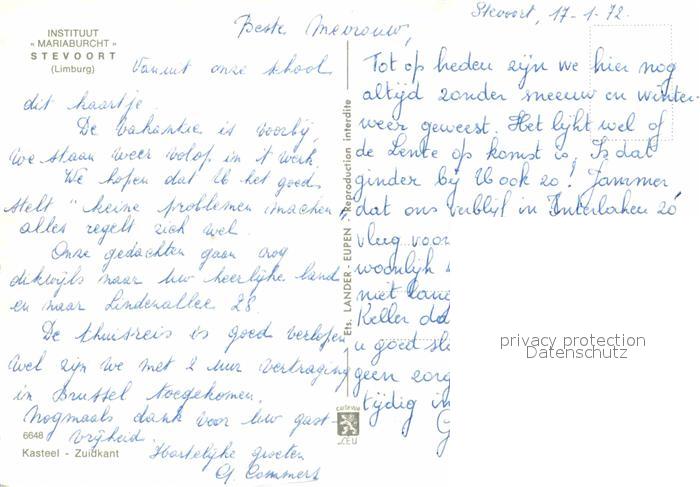 INSTITUUT
« MARIABURCHT »
STEVOORT
(Limburg)
Stevoort, 17-1-72.
Beste Mevrouw,
Vanuit onze school
dit kaartje.
De vakantie is voorbij,
we staan weer volop in 't werk.
We hopen dat U het goed
stelt "keine problemen machen",
alles regelt zich wel.
Onze gedachten gaan nog
dikwijls naar Uw heerlijke land
en naar Lindenallee 28.
De thuisreis is goed verlopen
wel zijn we met 2 uur vertraging
in Brussel toegekomen.
Nogmaals dank voor Uw gast-
vrijheid.
Hartelijke groeten
G. Commers
6648
Kasteel - Zuidkant
Ets. LANDER - EUPEN Reproduction interdite
LEU
Tot op heden zijn we hier nog
altijd zonder sneeuw en winter-
weer geweest. Het lijkt wel of
de Lente op komst is. Is dat
ginder bij U ook zo? Jammer
dat ons verblijf in Interlaken zo
vlug voor
woonlijk
niet lan
Keller da
u goed st
geen zorg
tijdig in
G
privacy protection
Datenschutz